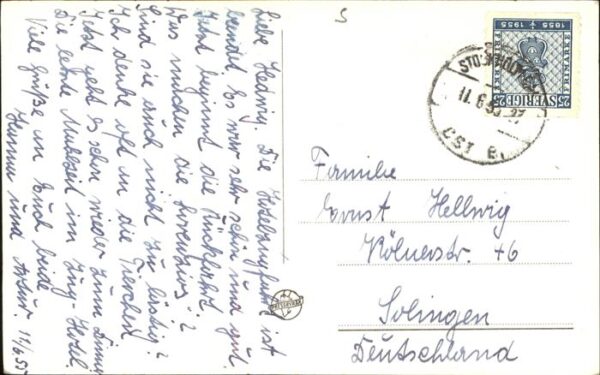 Liebe Hedwig. Die Hotelzugfahrt ist
beendet. Es war sehr schön und gut.
Jetzt beginnt die Rückfahrt.
Was machen die
Sind sie auch nicht zu lästig?
Ich denke oft an die Tierchen
Jetzt geht es schon wieder zum
Die letzte Mahlzeit im Zug-Hotel.
Viele Grüße an Euch beide
Hanna und Artur. 11/6 55
S
1855 1955
FRIMÄRKE
SVERIGE
25 25
STOCKHOLM
11 6 55
CST 6
Familie
Ernst Hellwig
Kölnerstr. 46
Solingen
Deutschland